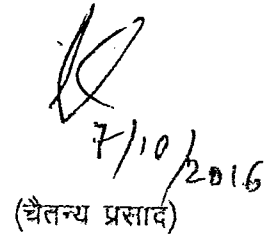 7/10/2016
(चैतन्य प्रसाद)